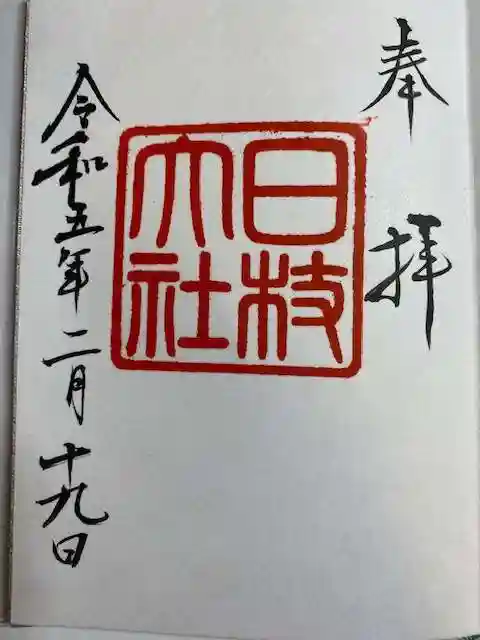 奉拝
日枝
大社
令和五年二月十九日